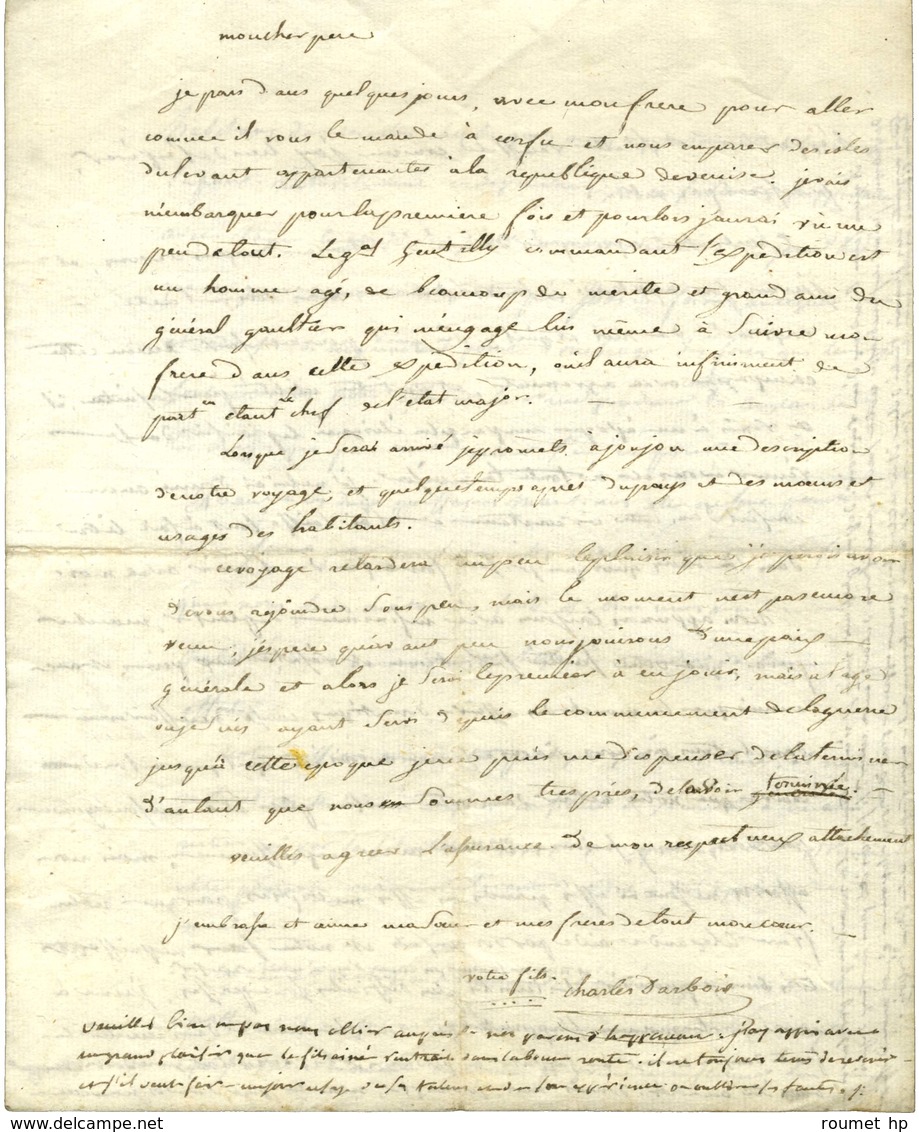 mon cher pere
je pars dans quelques jours, avec mon frere pour aller
comme il vous le mande à corfu et nous emparer des isles
du levant appartenantes à la republique de venise. je vais
m'embarquer pour la premiere fois et pour lors j'aurai vu un
peu de tout. Le gal Gentilly commandant l'expedition est
un homme agé, de beaucoup de merite et grand ami du
général gaultier qui m'engage lui même à suivre mon
frere dans cette expédition, où il aura infiniment de
part en etant le chef de l'etat major.
Lorsque je serai arrivé je promets à joujou une description
de notre voyage, et quelque temps après du pays et des moeurs et
usages des habitants.
ce voyage retardera un peu le plaisir que j'
de vous rejoindre sous peu, mais le moment n'est pas encore
venu, j'espere qu'avant peu nous jouirons d'une paix
générale et alors je serai le premier à en jouir, mais à l'age
où je suis ayant servi depuis le commencement de la guerre
jusqu'à cette epoque je ne puis me dispenser de la terminer
d'autant que nous en sommes tres près, de la voir terminée.
veuillés agreer l'assurance de mon respectueux attachement
j'embrasse et aime ma soeur et mes freres de tout mon coeur.
votre fils.
charles Darbois
veuillés bien ne pas nous oublier auprès de nos parens j'ay appris avec
un grand plaisir que le fils ainé rentrait dans la bonne route. il est toujours tems de revenir
et s'il veut faire un jour usage de ses talens on oubliera ses fautes.
roumet hp